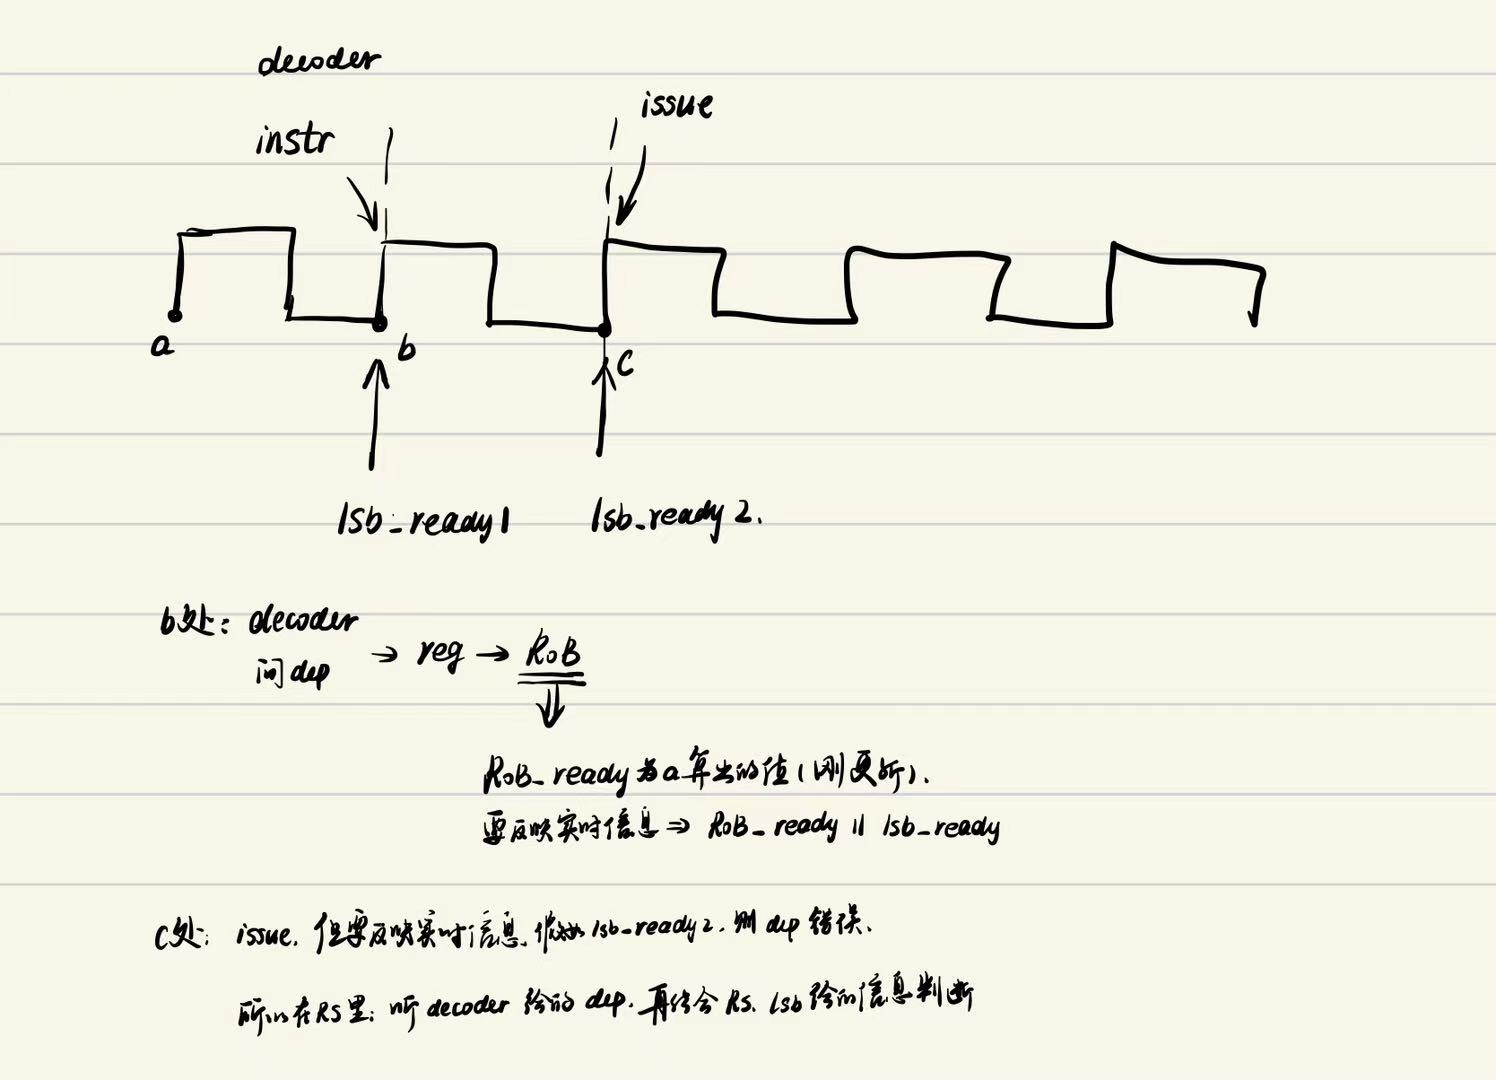 decoder
issue
instr
a
b
c
lsb_ready1
lsb_ready2.
b处: decoder
问dep → reg → RoB
RoB_ready为a算出的值(刚更新).
要反映实时信息 ⇒ RoB_ready || lsb_ready
c处: issue. 但要反映实时信息. 假如 lsb_ready2. 则 dep 错误.
所以在RS里: 听decoder给的 dep. 再结合 RS. lsb给的信息判断